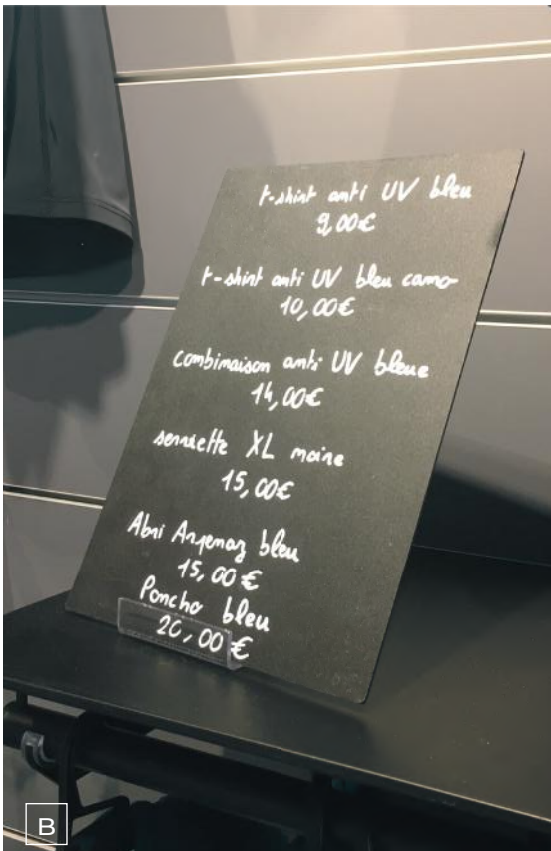 t-shirt anti UV bleu
9,00€
t-shirt anti UV bleu camo
10,00€
combinaison anti UV bleue
14,00€
serviette XL noire
15,00€
Abri bleu
15,00€
Poncho bleu
20,00€
B